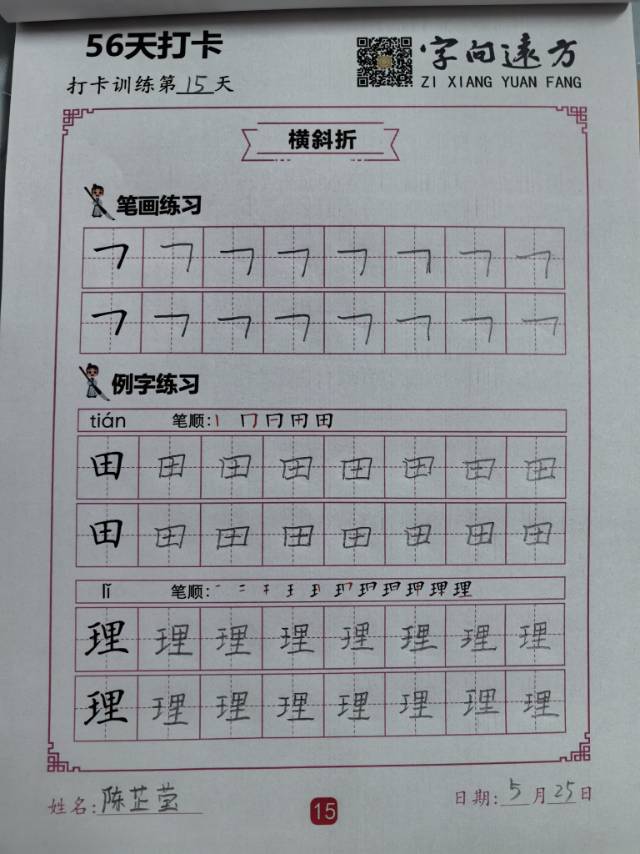 56天打卡
字向遠方
打卡训练第 15 天
ZI XIANG YUAN FANG
横斜折
笔画练习
㇕ ㇕ ㇕ ㇕ ㇕ ㇕ ㇕ ㇕
㇕ ㇕ ㇕ ㇕ ㇕ ㇕ ㇕ ㇕
例字练习
tián 笔顺: 田
田 田 田 田 田 田 田 田
田 田 田 田 田 田 田 田
lǐ 笔顺: 理
理 理 理 理 理 理 理 理
理 理 理 理 理 理 理 理
姓名: 陈芷莹
15
日期: 5 月 25 日